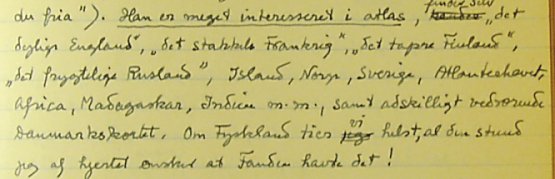 du fria"). Han er meget interesseret i atlas, finder selv "det
dejlige England", "det stakkels Frankrig", "det tapre Finland",
"det frygtelige Rusland", Island, Norge, Sverige, Atlanterhavet,
Afrika, Madagaskar, Indien m.m., samt adskilligt vedrørende
Danmarkskortet. Om Tyskland ties vi helst, al den stund
jeg af hjertet ønsker at Fanden havde det!